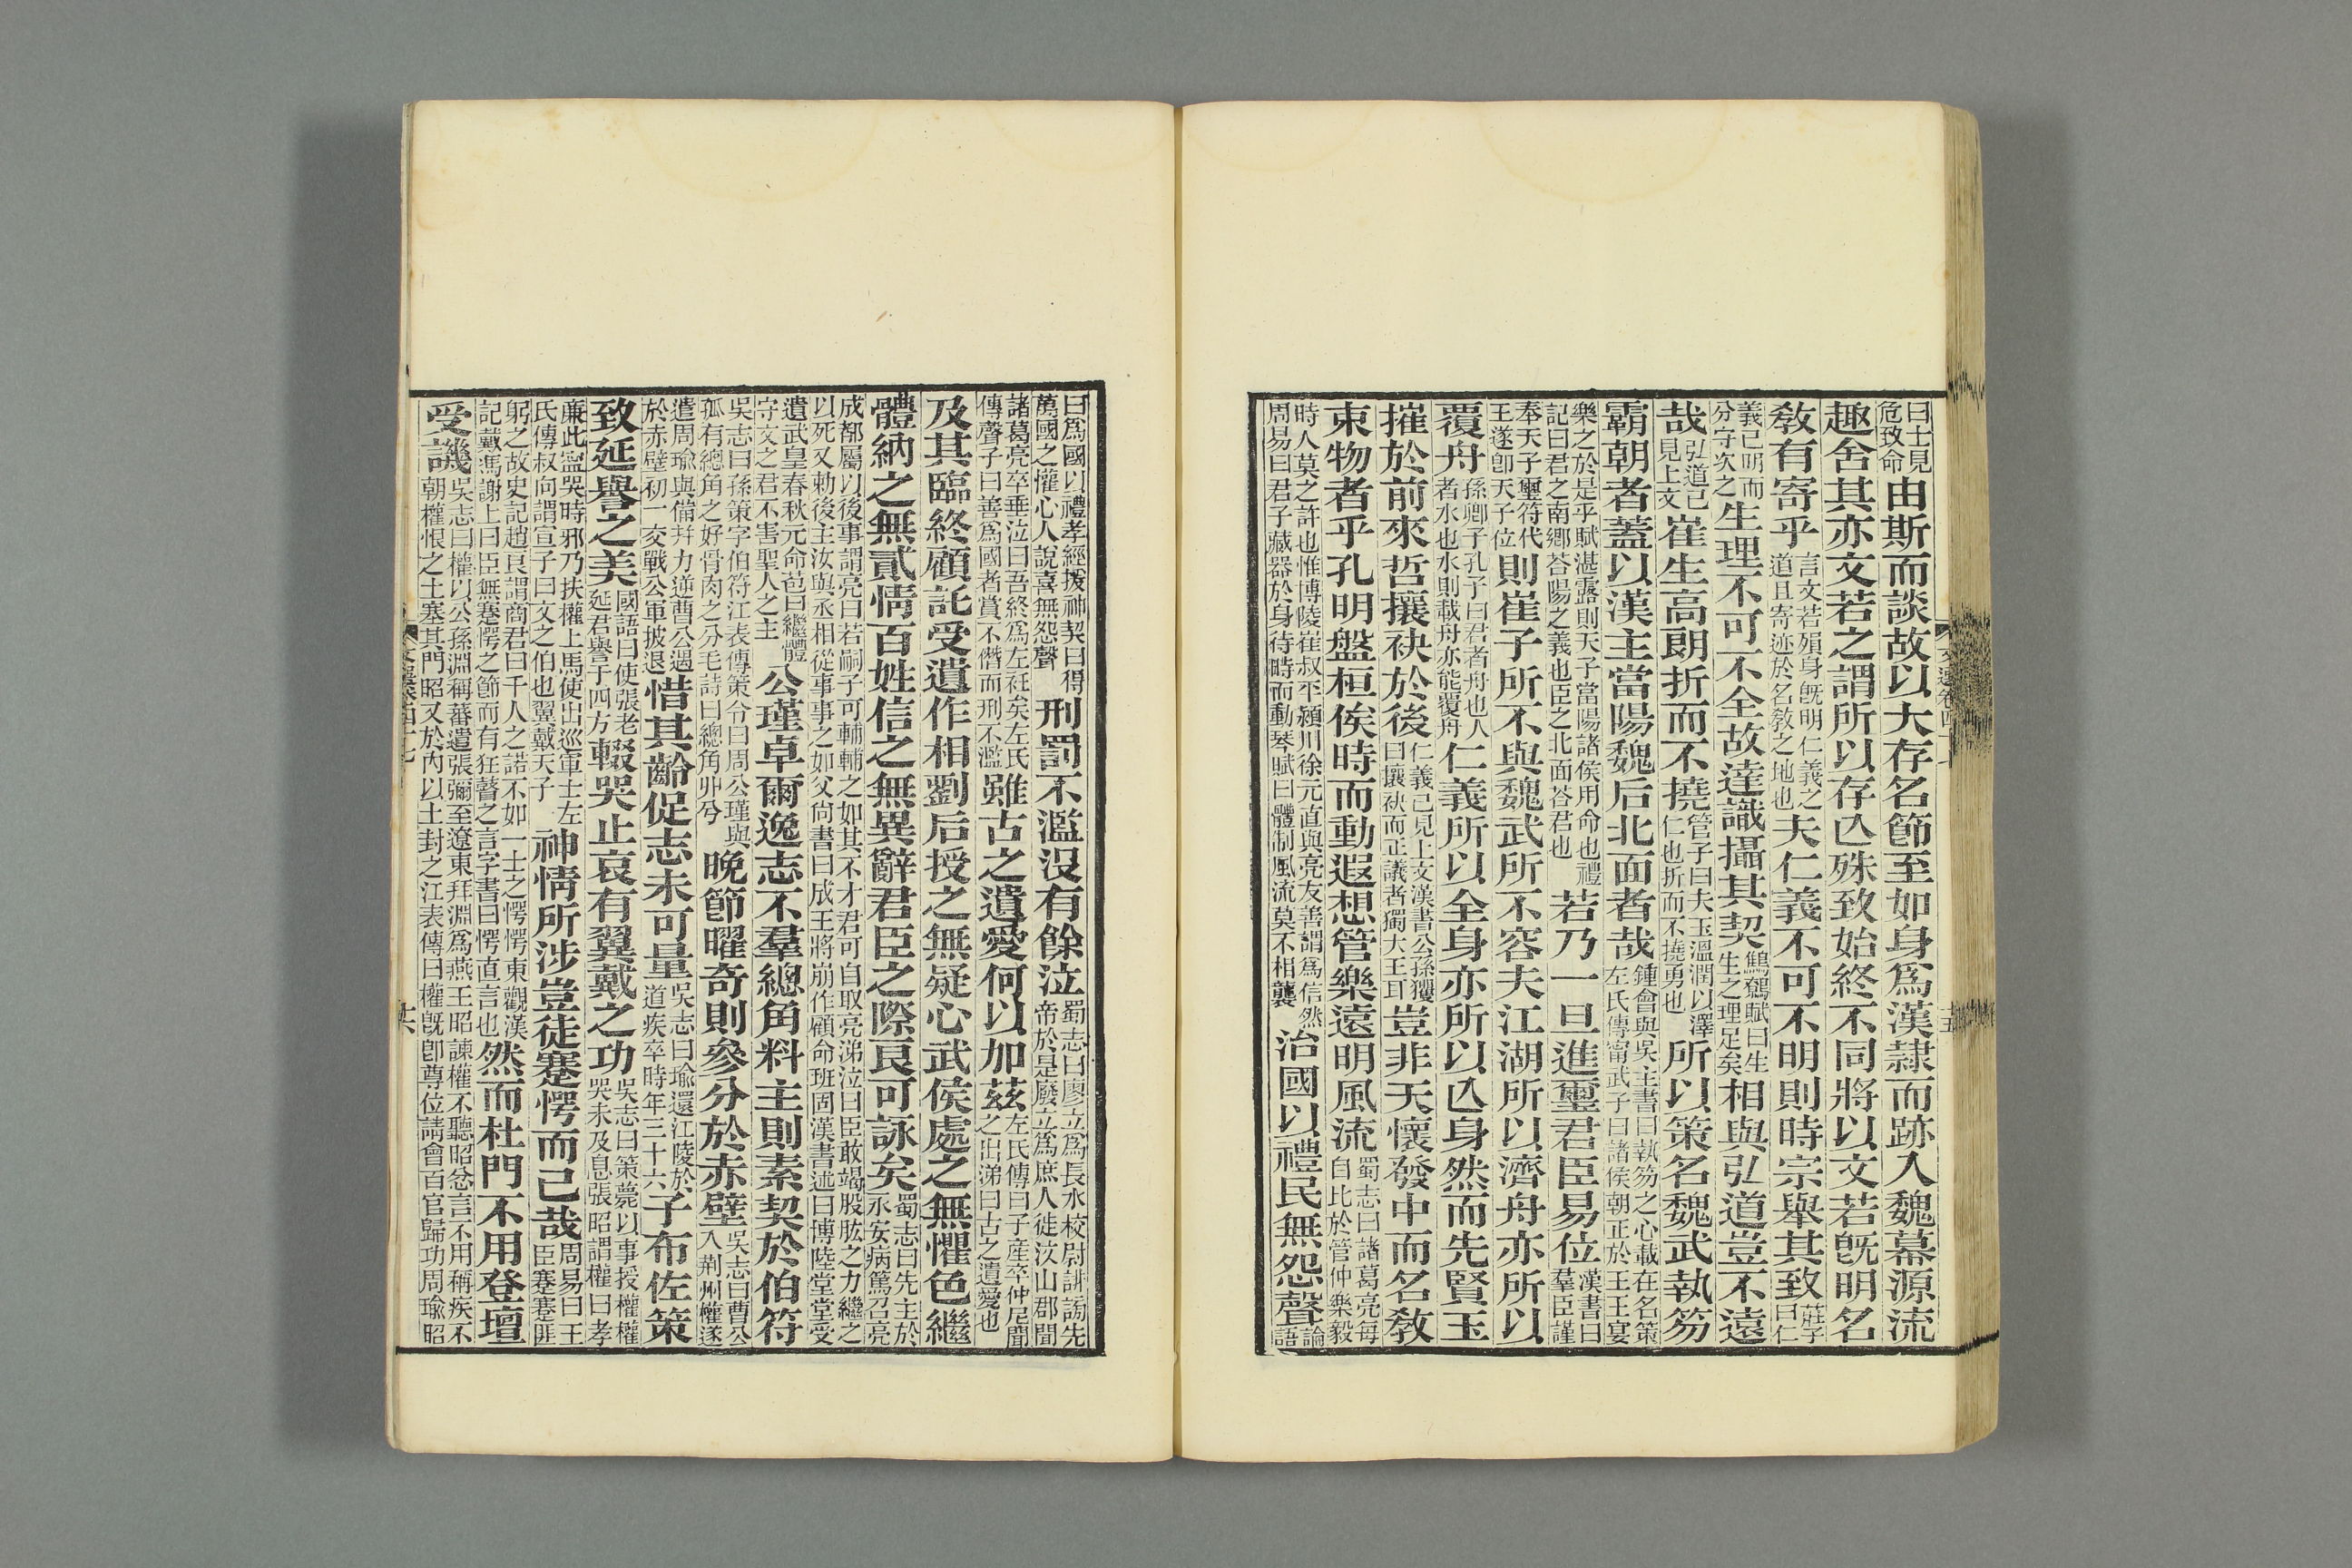 曰士見危致命由斯而談故以大存名節至如身爲漢隷而跡入魏幕源流
趣舍其亦文若之謂所以存亾殊致始終不同將以文若旣明名
敎有寄乎言文若殞身旣明仁義之道且寄迹於名敎之地也夫仁義不可不明則時宗舉其致莊子曰仁
義已明而分守次之生理不可不全故達識攝其契鷦鷯賦曰生生之理足矣相與弘道豈不遠
哉弘道已見上文崔生高朗折而不撓管子曰夫玉溫潤以澤仁也折而不撓勇也所以策名魏武執笏
霸朝者蓋以漢主當陽魏后北面者哉鍾會與吳主書曰執笏之心載在名策左氏傳甯武子曰諸侯朝正於王王宴
樂之於是乎賦湛露則天子當陽諸侯用命也禮記曰君之南鄉荅陽之義也臣之北面荅君也若乃一旦進璽君臣易位漢書曰羣臣謹
奉天子璽符代王遂卽天子位則崔子所不與魏武所不容夫江湖所以濟舟亦所以
覆舟孫卿子孔子曰君者舟也人者水也水則載舟亦能覆舟仁義所以全身亦所以亾身然而先賢玉
摧於前來哲攘袂於後仁義已見上文漢書公孫玃曰攘袂而正議者獨大王耳豈非天懷發中而名敎
束物者乎孔明盤桓俟時而動遐想管樂遠明風流蜀志曰諸葛亮每自比於管仲樂毅
時人莫之許也惟博陵崔叔平潁川徐元直與亮友善謂爲信然周易曰君子藏器於身待時而動琴賦曰體制風流莫不相襲治國以禮民無怨聲論語
文選卷四十七
十五
曰爲國以禮孝經援神契曰得萬國之懽心人說喜無怨聲刑罰不濫沒有餘泣蜀志曰廖立爲長水校尉誹謗先帝於是廢立爲庶人徙汶山郡聞
諸葛亮卒垂泣曰吾終爲左衽矣左氏傳聲子曰善爲國者賞不僭而刑不濫雖古之遺愛何以加茲左氏傳曰子產卒仲尼聞之出涕曰古之遺愛也
及其臨終顧託受遺作相劉后授之無疑心武侯處之無懼色繼
體納之無貳情百姓信之無異辭君臣之際良可詠矣蜀志曰先主於永安病篤召亮
成都屬以後事謂亮曰若嗣子可輔輔之如其不才君可自取亮涕泣曰臣敢竭股肱之力繼之以死又勑後主汝與丞相從事事之如父尙書曰成王將崩作顧命班固漢書述曰博陸堂堂受
遺武皇春秋元命苞曰繼體守文之君不害聖人之主公瑾卓爾逸志不羣總角料主則素契於伯符
吳志曰孫策字伯符江表傳策令曰周公瑾與孤有總角之好骨肉之分毛詩曰總角丱兮晚節曜奇則參分於赤壁吳志曰曹公入荆州權遂
遣周瑜與備幷力逆曹公遇於赤壁初一交戰公軍披退惜其齡促志未可量吳志曰瑜還江陵於道疾卒時年三十六子布佐策
致延譽之美國語曰使張老延君譽于四方輟哭止哀有翼戴之功吳志曰策薨以事授權權哭未及息張昭謂權曰孝
廉此寍哭時邪乃扶權上馬使出巡軍士左氏傳叔向謂宣子曰文之伯也翼戴天子神情所涉豈徒蹇愕而已哉周易曰王臣蹇蹇匪
躬之故史記趙良謂商君曰千人之諾不如一士之愕愕東觀漢記戴馮謝上曰臣無蹇愕之節而有狂瞽之言字書曰愕直言也然而杜門不用登壇
受譏吳志曰權以公孫淵稱藩遣張彌至遼東拜淵爲燕王昭諫權不聽昭忿言不用稱疾不朝權恨之土塞其門昭又於內以土封之江表傳曰權旣卽尊位請會百官歸功周瑜昭
文選卷四十七
十六